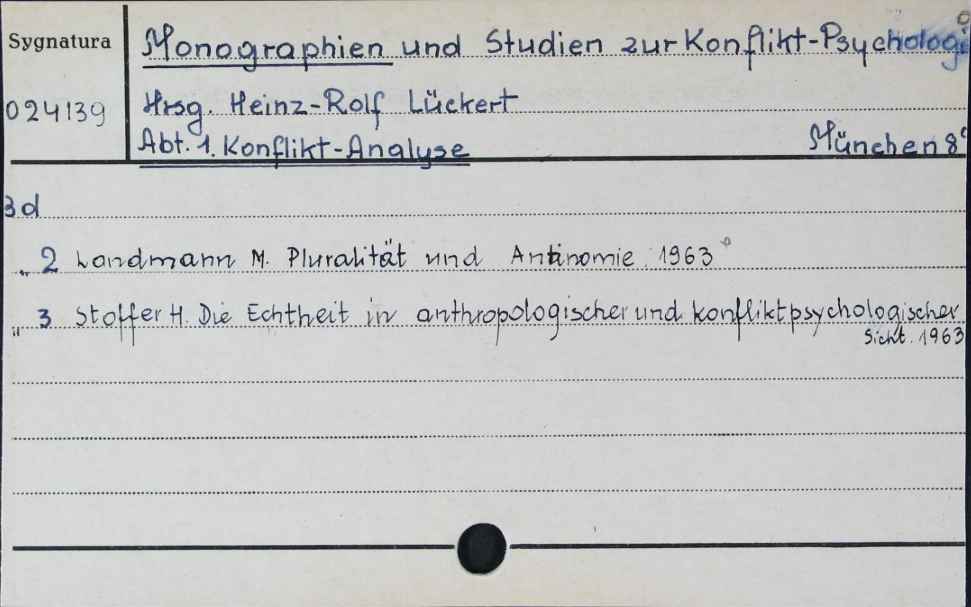 Sygnatura
Monographien und Studien zur Konflikt-Psychologi
024139
Hrsg. Heinz-Rolf Lückert
Abt. 1. Konflikt-Analyse München 8°
Bd
„ 2 Landmann M. Pluralität und Antinomie. 1963
„ 3 Stoffer H. Die Echtheit in anthropologischer und konfliktpsychologischer
Sicht. 1963